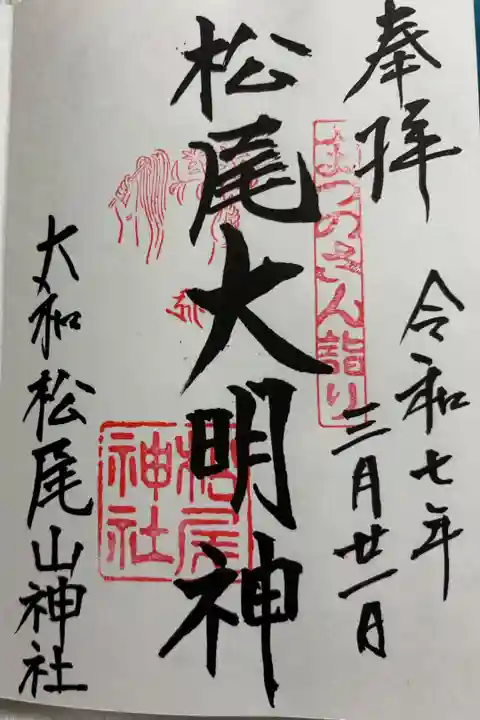 奉拝
まつのさん詣り
令和七年
三月廿一日
松尾大明神
松尾
神社
大和松尾山神社